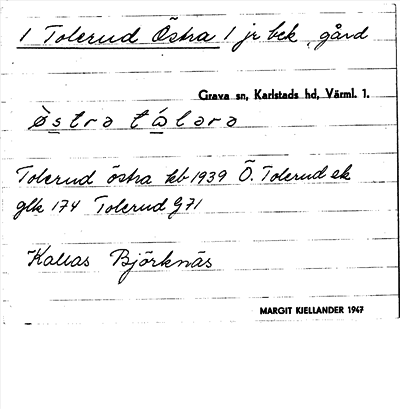 1 Tolerud Östra 1 jr bek, gård
Grava sn, Karlstads hd, Värml. 1.
Tolerud östra kb 1939 Ö. Tolerud ek
glk 174 Tolerud G71
Kallas Björknäs
MARGIT KJELLANDER 1947